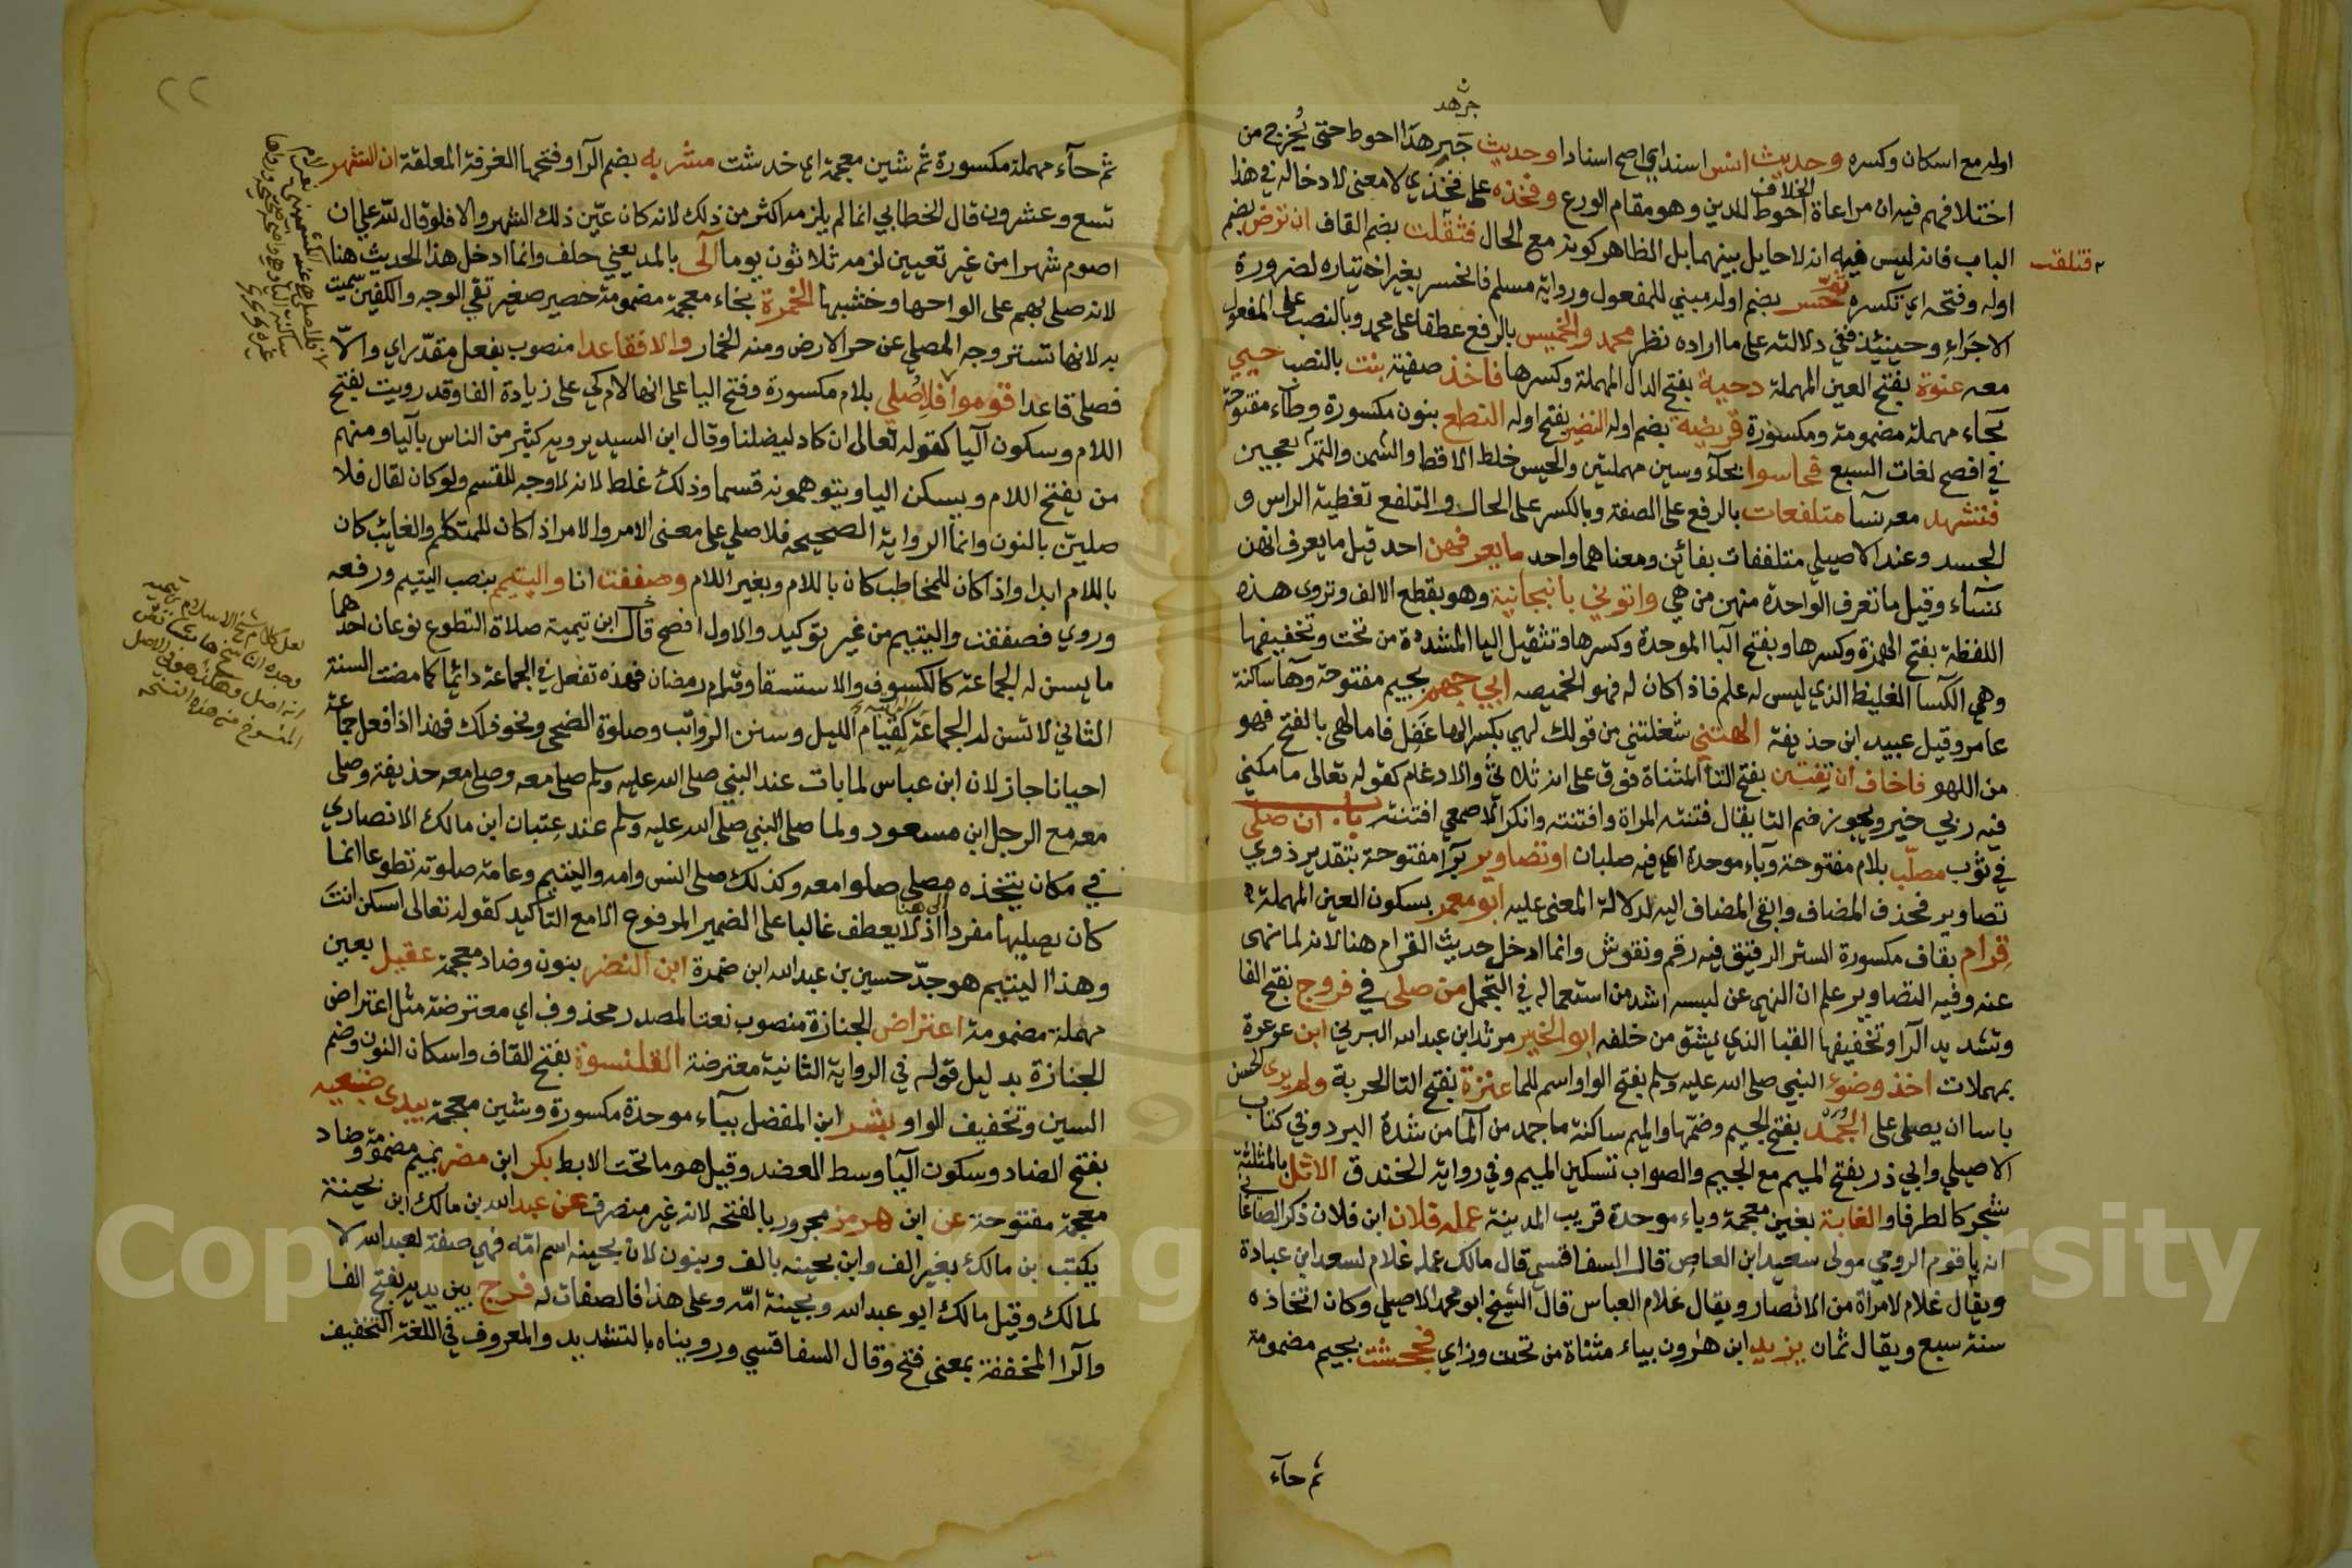 جرهد
اوله مع اسكان وكسره وحديث انس اسند اي اصح اسنادا وحديث جرهد احوط حتى يخرج من
اختلافهم فيه ان مراعاة الخلاف احوط للدين وهو مقام الورع وفخذه على فخذي لا معنى لادخاله في هذا
الباب فانه ليس فيه انه لا حايل بينهما بل الظاهر كونه مع الحال فثقلت بضم القاف ان ترض بضم
فثقلت
اوله وفتحه اي تكسره حسر بضم اوله مبني للمفعول ورواية مسلم فانحسر بغير اختياره لضرورة
الاجراء وحينئذ ففي دلالته على ما اراده نظر محمد والخميس بالرفع عطفا على محمد وبالنصب على المفعول
معه عنوة بفتح العين المهملة دحية بفتح الدال المهملة وكسرها فاخذ صفية بنت بالنصب حيي
بحاء مهملة مضمومة ومكسورة قريضة بضم اوله النضير بفتح اوله النطع بنون مكسورة وطاء مفتوحة
في افصح لغات السبع فحاسوا بحاء وسين مهملتين والحيس خلط الاقط والسمن والتمر بعجين
فتشهد معه نسا متلفعات بالرفع على الصفة وبالكسر على الحال والتلفع تغطية الراس و
الجسد وعند الاصيلي متلففات بفائين ومعناهما واحد ما يعرفهن احد قيل ما يعرف انهن
نساء وقيل ما تعرف الواحدة منهن من هي واتوني بانبجانية وهو بقطع الالف وتروى هذه
اللفظة بفتح الهمزة وكسرها وبفتح البا الموحدة وكسرها وتثقيل اليا المشددة من تحت وتخفيفها
وهي الكسا الغليظ الذي ليس له علم فاذا كان له فهو الخميصه ابي جهم بجيم مفتوحة وهاء ساكنة
عامر وقيل عبيد ابن حذيفة الهتني شغلتني من قولك لهي بكسر الها غفل فاما لهى بالفتح فهو
من اللهو فاخاف ان تفتنن بفتح التا المثناة فوق على انه ثلاثي والادغام كقوله تعالى ما مكني
فيه ربي خير ويجوز ضم التا يقال فتنته المراة وافتنته وانكر الاصمعي افتنته باب ان صلى
في ثوب مصلب بلام مفتوحة وباء موحدة اي فيه صلبان او تصاوير برا مفتوحة بتقدير ذوي
تصاوير فحذف المضاف وابقى المضاف اليه لدلالة المعنى عليه ابو معمر بسكون العين المهملة
قرام بقاف مكسورة الستر الرقيق فيه رقم ونقوش وانما ادخل حديث القرام هنا لانه لما نهى
عنه وفيه التصاوير علم ان النهي عن لبسه اشد من استعماله في التجمل من صلى في فروج بفتح الفا
وتشديد الرا وتخفيفها القبا الذي يشق من خلفه ابو الخير مرثد ابن عبد الله اليزني ابن عرعرة
بمهملات اخذ وضوء النبي صلى الله عليه وسلم بفتح الواو اسم للما عنزة بفتح التا الحربة ولم يرى الحسن
باسا ان يصلى على الجمد بفتح الجيم وضمها والميم ساكنة ما جمد من الما من شدة البرد وفي كتاب
الاصيلي وابي ذر بفتح الميم مع الجيم والصواب تسكين الميم وفي رواية الخندق الاثل بالمثلثة
شجر كالطرفا والغابة بغين معجمة وباء موحدة قريب المدينة عمله فلان ابن فلان ذكر الصاغاني
انه باقوم الرومي مولى سعيد ابن العاص قال السفاقسي قال مالك عمله غلام لسعد ابن عبادة
ويقال غلام لامراة من الانصار ويقال غلام العباس قال الشيخ ابو محمد الاصيلي وكان اتخاذه
سنة سبع ويقال ثمان يزيد ابن هرون بياء مثناة من تحت وزاي فجحشت بجيم مضمومة
ثم حآء
٢٢
ثم حآء مهملة مكسورة ثم شين معجمة اي خدشت مشربه بضم الرا وفتحها الغرفة المعلقة ان الشهر
تسع وعشرون قال الخطابي انما لم يلزمه اكثر من ذلك لانه كان عين ذلك الشهر والا فلو قال لله علي ان
اصوم شهرا من غير تعيين لزمه ثلاثون يوما آلى بالمد يعني حلف وانما ادخل هذا الحديث هنا
لانه صلى بهم على الواحها وخشبها الخمرة بخاء معجمة مضمومة حصير صغير تقي الوجه والكفين سميت
به لانها تستر وجه المصلي عن حر الارض ومنه الخمار والا فقاعدا منصوب بفعل مقدر اي والا
فصلى قاعدا قوموا فلاصلي بلام مكسورة وفتح اليا على انها لام كي على زيادة الفا وقد رويت بفتح
اللام وسكون اليا كقوله تعالى ان كاد ليضلنا وقال ابن السيد يرويه كثير من الناس باليا ومنهم
من يفتح اللام ويسكن اليا ويتوهمونه قسما وذلك غلط لانه لا وجه للقسم ولو كان لقال فلا
صلين بالنون وانما الرواية الصحيحه فلاصلي على معنى الامر والامر اذا كان للمتكلم والغايب كان
باللام ابدا واذا كان للمخاطب كان باللام وبغير اللام وصففت انا واليتيم بنصب اليتيم ورفعه
وروي فصففت واليتيم من غير توكيد والاول افصح قال ابن تيمية صلاة التطوع نوعان احدهما
ما يسن له الجماعة كالكسوف والاستسقا وقيام رمضان فهذه تفعل في الجماعة دائما كما مضت السنة
الثاني لا تسن له الجماعة كقيام الليل وسنن الرواتب وصلوة الضحى ونحو ذلك فهذا اذا فعل جماعة
احيانا جاز لان ابن عباس لما بات عند النبي صلى الله عليه وسلم صلى معه وصلى معه حذيفة وصلى
معه مع الرجل ابن مسعود ولما صلى النبي صلى الله عليه وسلم عند عتبان ابن مالك الانصاري
في مكان يتخذه مصلى صلوا معه وكذلك صلى انس وامه واليتيم وعامة صلوته تطوعا انما
كان يصليها مفردا الى هنا اذ لا يعطف غالبا على الضمير المرفوع الا مع التاكيد كقوله تعالى اسكن انت
وهذا اليتيم هو جد حسين بن عبد الله ابن ضمرة ابن النضر بنون وضاد معجمة عقيل بعين
مهملة مضمومة اعتراض الجنازة منصوب نعتا لمصدر محذوف اي معترضة مثل اعتراض
الجنازة بدليل قوله في الرواية الثانية معترضة القلنسوة بفتح القاف واسكان النون وضم
السين وتخفيف الواو بشر ابن المفضل بباء موحدة مكسورة وشين معجمة يبدى ضبعيه
بفتح الضاد وسكون البا وسط العضد وقيل هو ما تحت الابط بكر ابن مضر بميم مضمومة وضاد
معجمة مفتوحة عن ابن هرمز مجرور بالفتحه لانه غير منصرف عن عبد الله بن مالك ابن بحينة
يكتب بن مالك بغير الف وابن بحينه بالف وبنون لان بحينه اسم امه فهي صفة لعبد الله لا
لمالك وقيل مالك ابو عبد الله وبحينة امه وعلى هذا فالصفات له فرج بين يديه بفتح الفا
والرا المخففة بمعنى فتح وقال السفاقسي ورويناه بالتشديد والمعروف في اللغة التخفيف